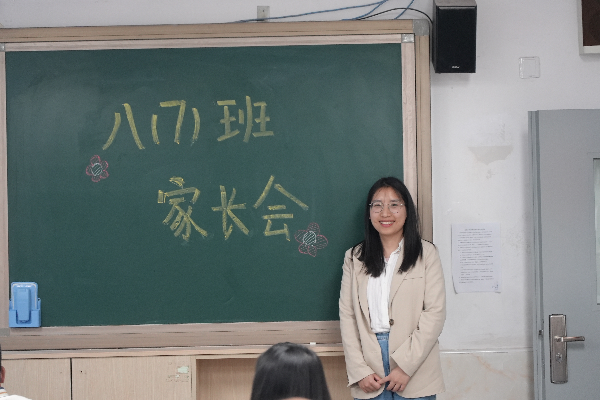 八(7)班
家长会